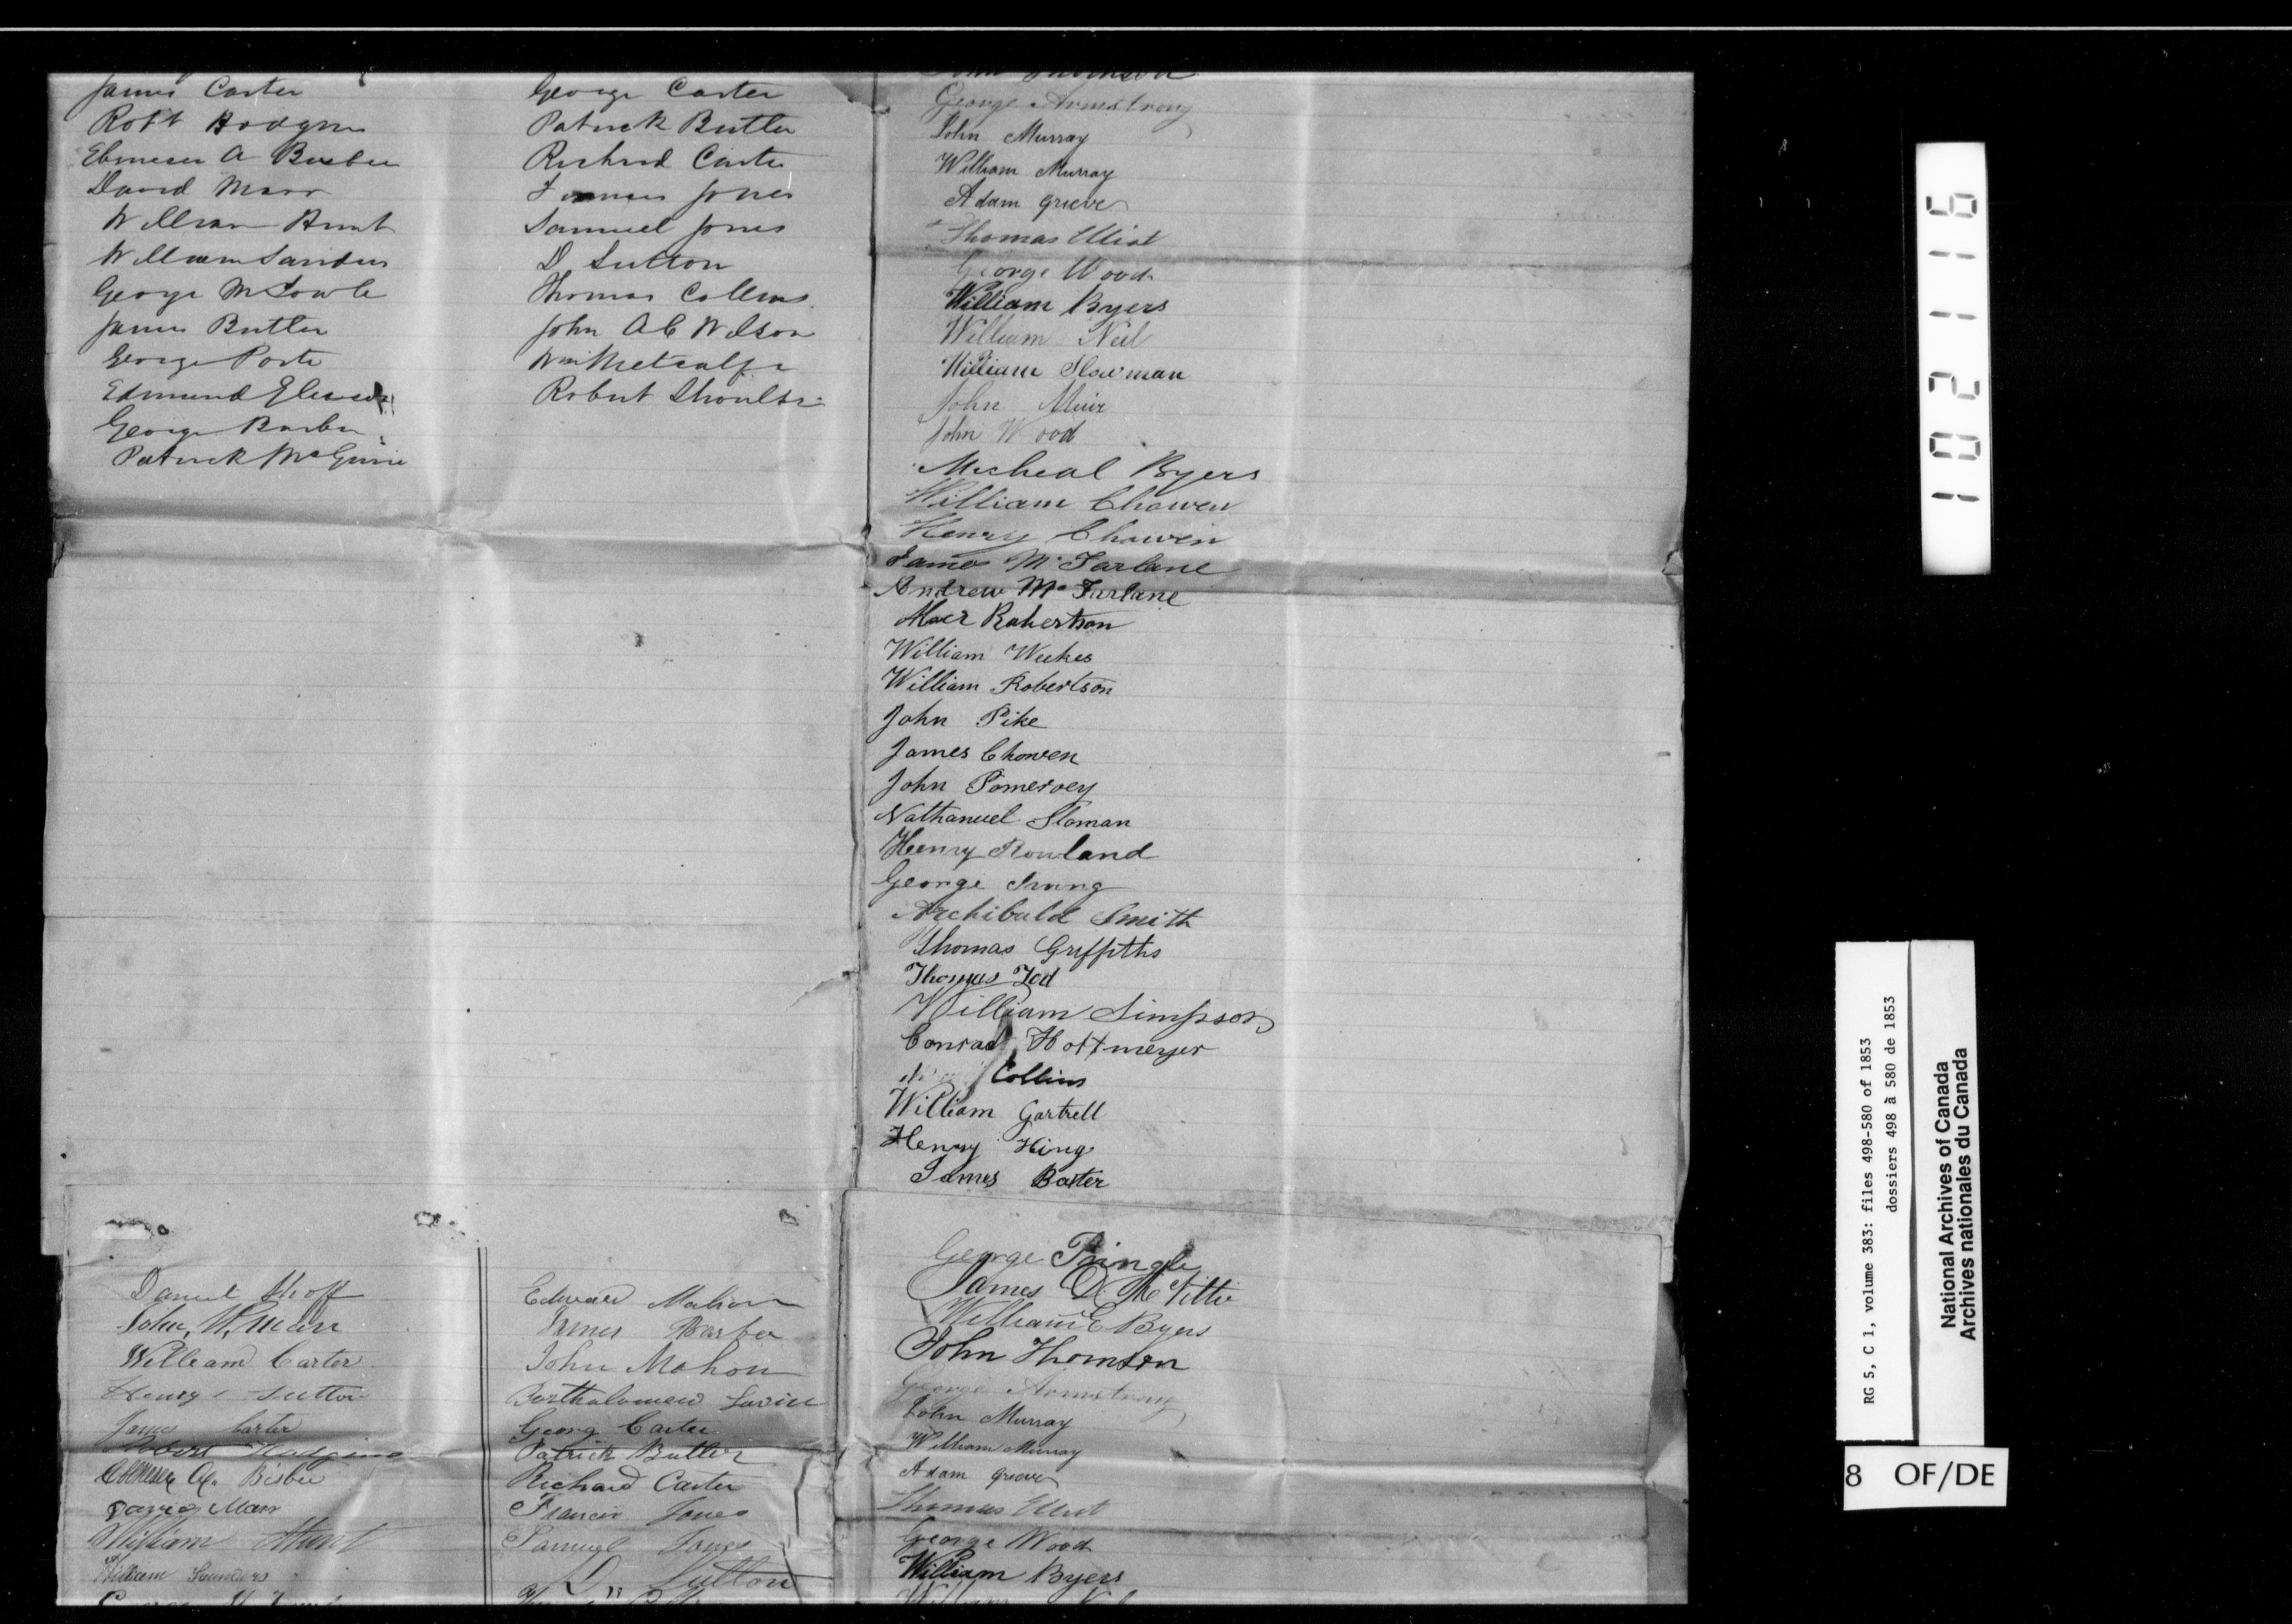 James Carter
Robt Hodgins
Ebeneser A Bisbee
David Marr
William Hunt
William Sanders
George McFowle
James Butler
George Porte
Edmund
George Barber
Patrick McGuire
George Carter
Patrick Butler
Richard Carter
Francis Jones
Samuel Jones
D Sutton
Thomas Collins
John A C Wilson
Wm Metcalfe
Robert Shoults
John Thomson
George Armstrong
John Murray
William Murray
Adam Grieve
Thomas Eliot
George Wood
William Byers
William Neil
William Slowman
John Muir
John Wood
Micheal Byers
William Chowen
Henry Chowen
James McFarlane
Andrew McFarlane
Robertson
William Weekes
William Robertson
John Pike
James Chowen
John Pomeroey
Nathanuel Sloman
Henry Rowland
George Irving
Archibald Smith
Thomas Griffiths
Thomas Tod
William Simpson
Conrad Hottmeyer
Collins
William Gartrell
Henry King
James Baxter
Daniel Shoff
John
William Carter
Henry Sutton
James Carter
Robert Hodgins
Ebeneser A. Bisbee
David Marr
William Hunt
William Saunders
Edward Mahon
James Barber
John Mahon
Bartholomew
Georg Carter
Patrick Butler
Richard Carter
Francis Jones
Samuel Jones
D. Sutton
George Pringle
James D McVittie
William E Byers
John Thomson
George Armstrong
John Murray
William Murray
Adam Grieve
Thomas Eliot
George Wood
William Byers
William
102116
RG 5, C 1, volume 383: files 498-580 of 1853
dossiers 498 à 580 de 1853
National Archives of Canada
Archives nationales du Canada
8 OF/DE